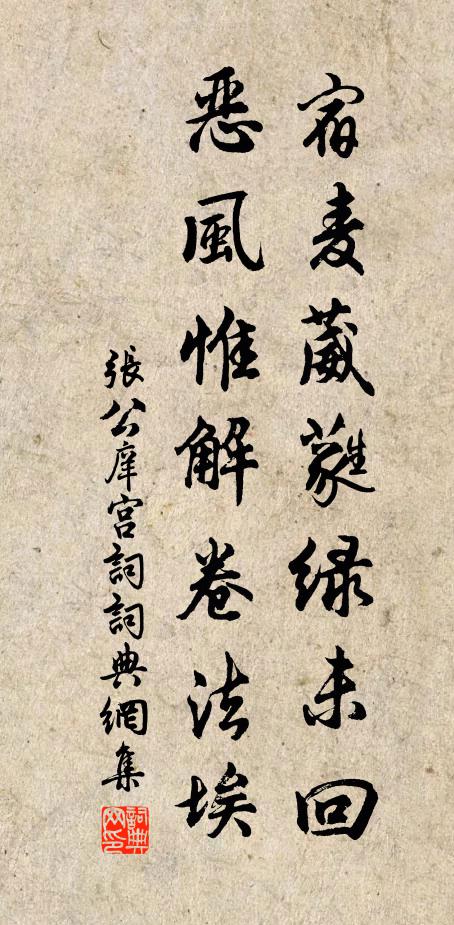 宿麦葳蕤緑未回
惡風惟解卷法埃
張公庠宫詞詞典網集
詞典网印